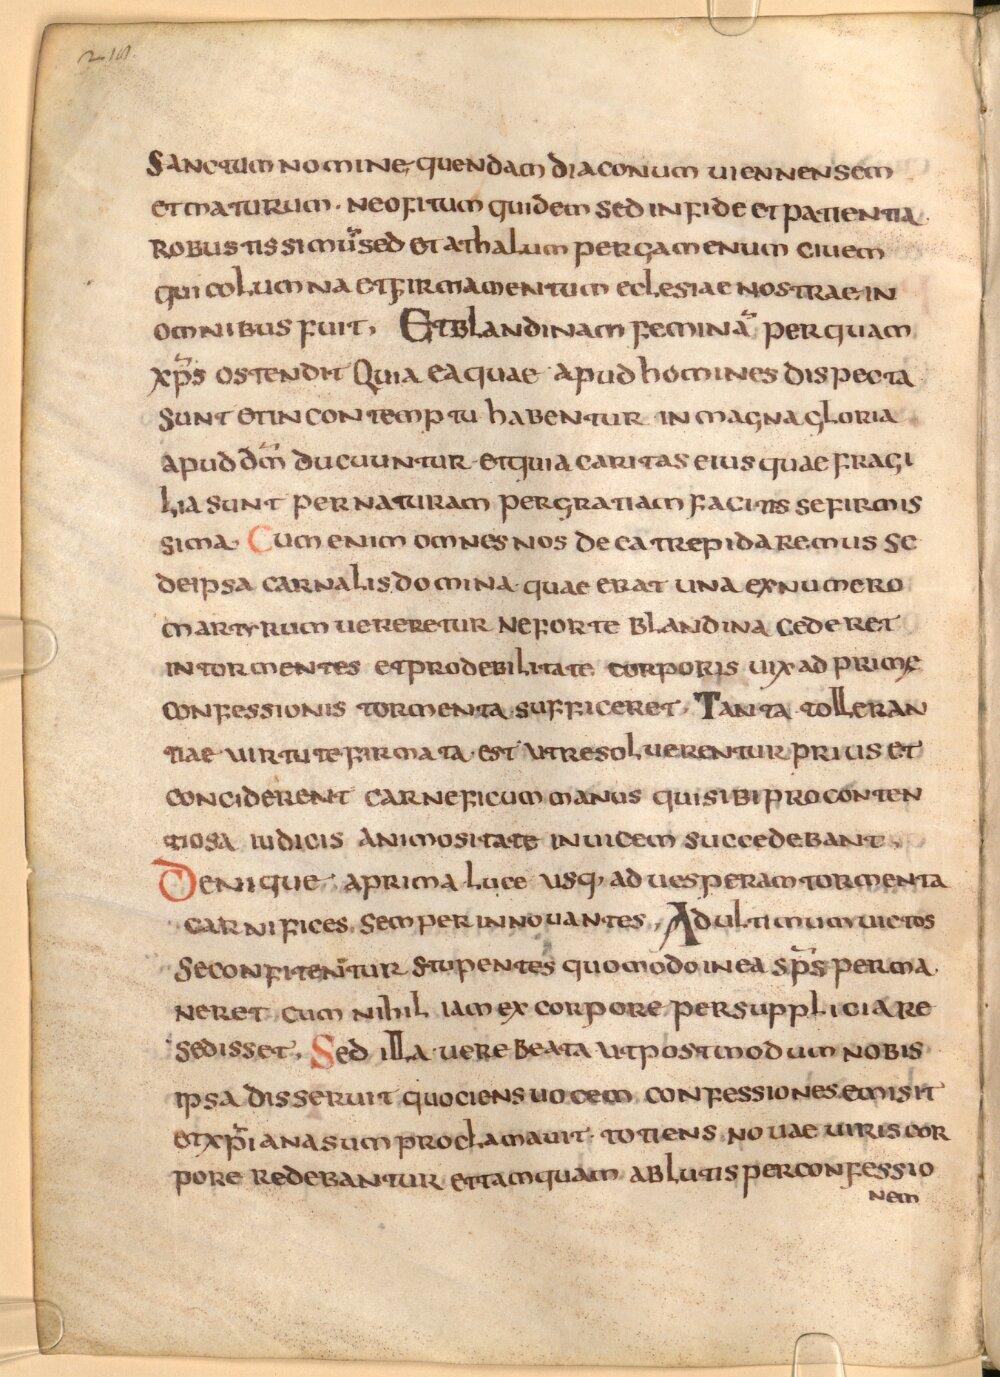 210.
Sanctum nomine, quendam diaconum uiennensem
et maturum · neofitum quidem sed in fide et patientia
robustissimū sed et athalum pergamenum ciuem
qui columna et firmamentum eclesiae nostrae in
omnibus fuit, Et blandinam feminā per quam
xp̄s ostendit Quia ea quae apud homines dispecta
sunt et in contemptu habentur in magna gloria
apud dm̄ ducuuntur · et quia caritas eius quae fragi
lia sunt per naturam per gratiam facit is se firmis
sima · Cum enim omnes nos de ea trepidaremus se
de ipsa carnalis domina · quae erat una ex numero
martyrum uereretur Ne forte blandina cederet
in tormentes et pro debilitate corporis uix ad prime
confessionis tormenta sufficeret, Tanta tolleran
tiae uirtute firmata est ut resoluerentur prius et
conciderent carneficum manus qui sibi pro conten
tiosa iudicis animositate inuicem succedebant,
Denique a prima luce usq, ad uesperam tormenta
carnifices semper innouantes, Ad ultimum uictos
se confitentur stupentes quomodo in ea sp̄s perma
neret cum nihil iam ex corpore per supplicia re
sedisset, Sed illa uere beata ut postmodum nobis
ipsa disseruit quociens uocem confessiones emisit
et xp̄ianasum proclamauit · totiens nouae uiris cor
pore redebantur et tamquam ablutis per confessio
nem